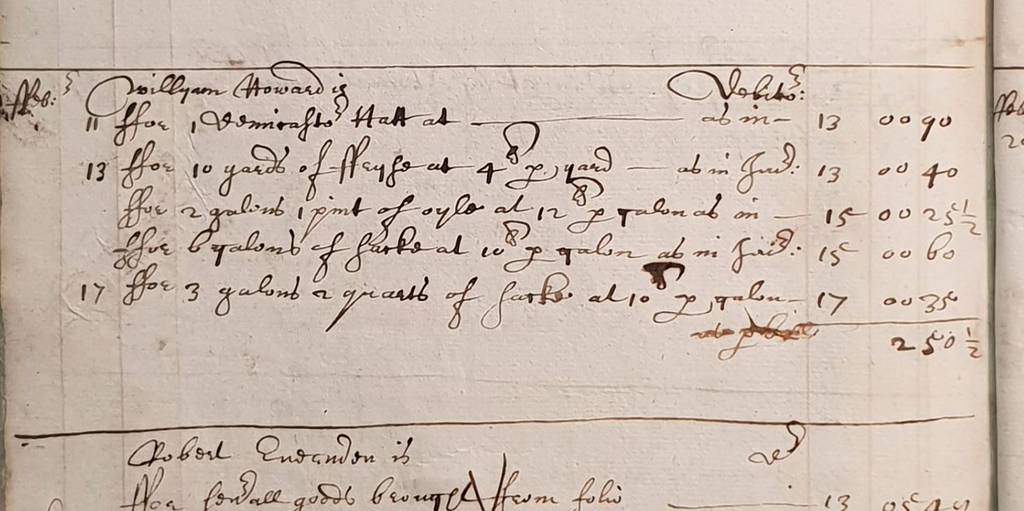 ffeb: William Howard is Debitor:
11 ffor 1 Demicastor Hatt at — as in — 13 00 90
13 ffor 10 yards of ffryse at 4 lb p yard — as in Jud: 13 00 40
ffor 2 galons 1 pint of oyle at 12 lb p galon as in — 15 00 25 1/2
ffor 6 galons of Sacke at 10 lb p galon as in Jud: 15 00 60
17 ffor 3 galons 2 quarts of sacke at 10 p galon — 17 00 35
250 1/2
Robert Evernden is D
ffor severall goods brought from folio — 13